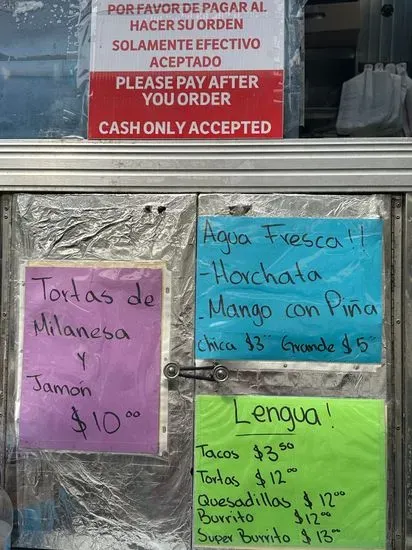 POR FAVOR DE PAGAR AL
HACER SU ORDEN
SOLAMENTE EFECTIVO
ACEPTADO
PLEASE PAY AFTER
YOU ORDER
CASH ONLY ACCEPTED
Agua Fresca!!
-Horchata
-Mango con Piña
Chica $3 Grande $5
Tortas de
Milanesa
y
Jamón
$10.00
Lengua!
Tacos $3.50
Tortas $12.00
Quesadillas $12.00
Burrito $12.00
Super Burrito $13.00